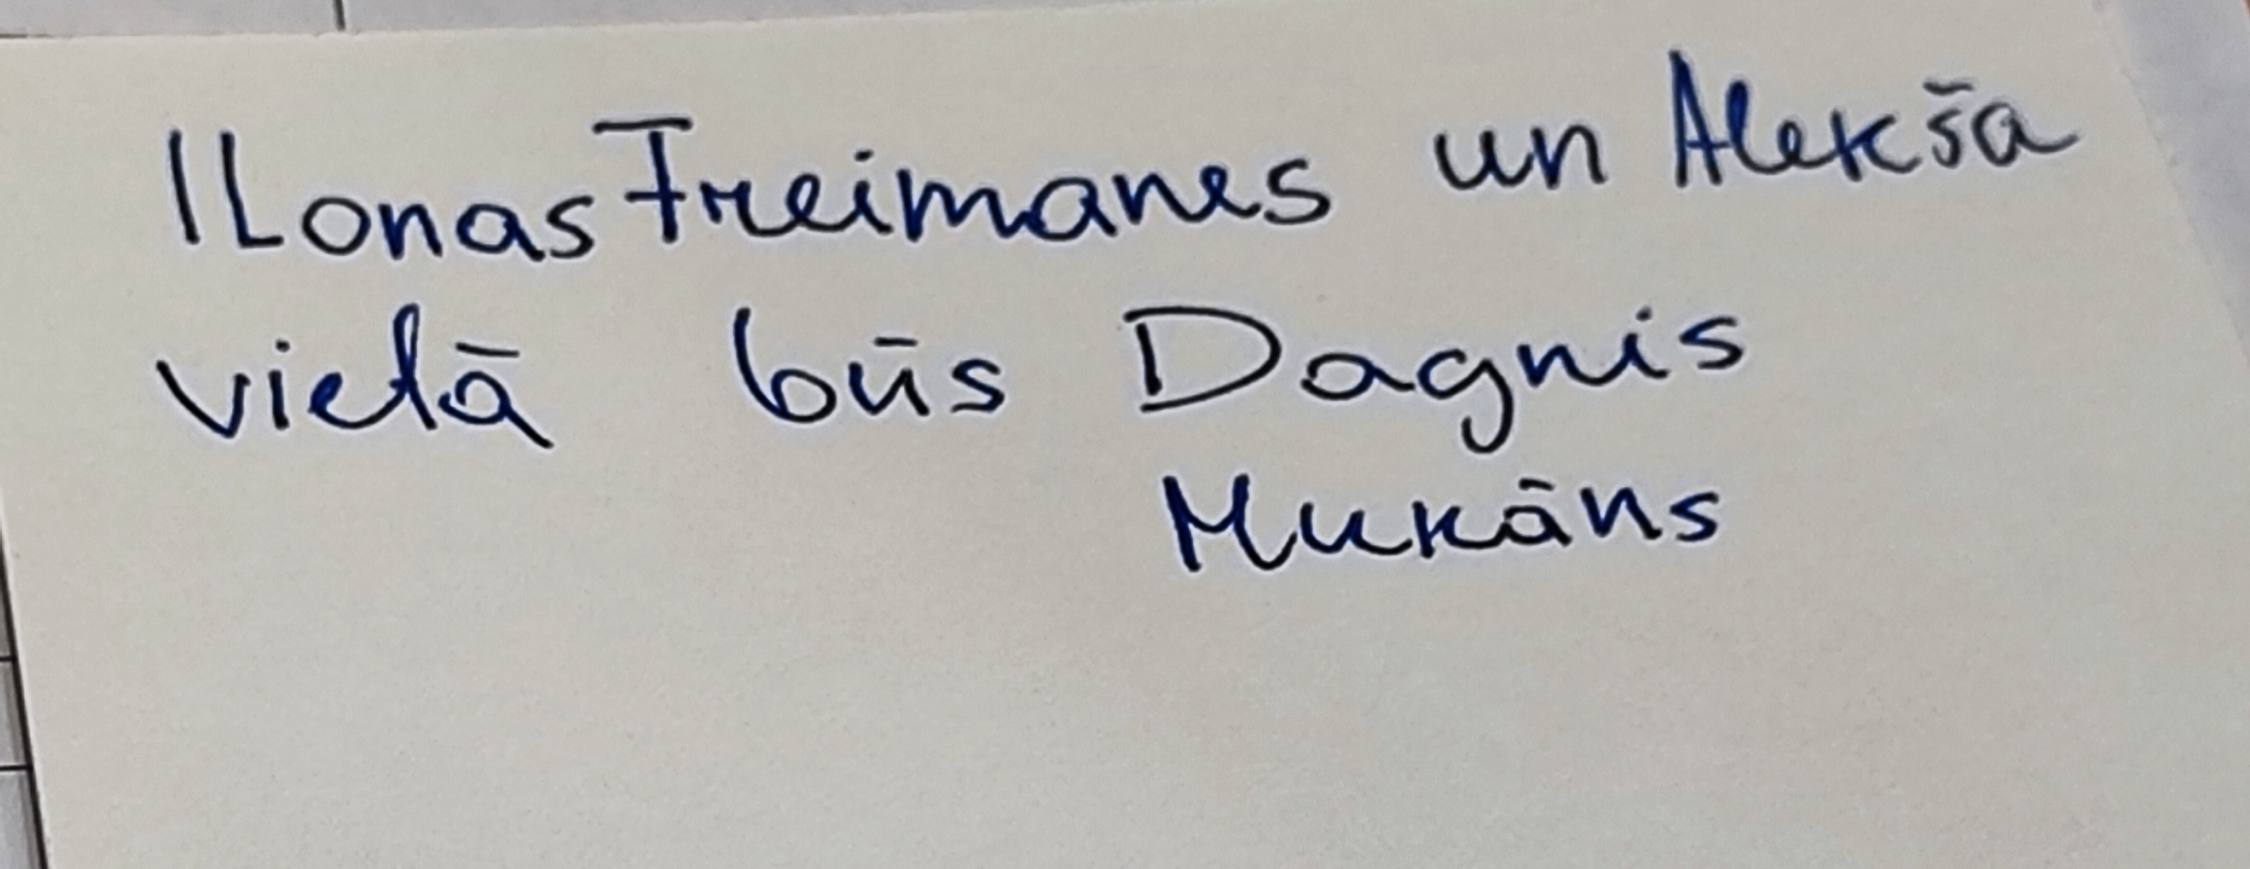 Ilonas Freimanes un Alekša
vietā būs Dagnis
Mukāns